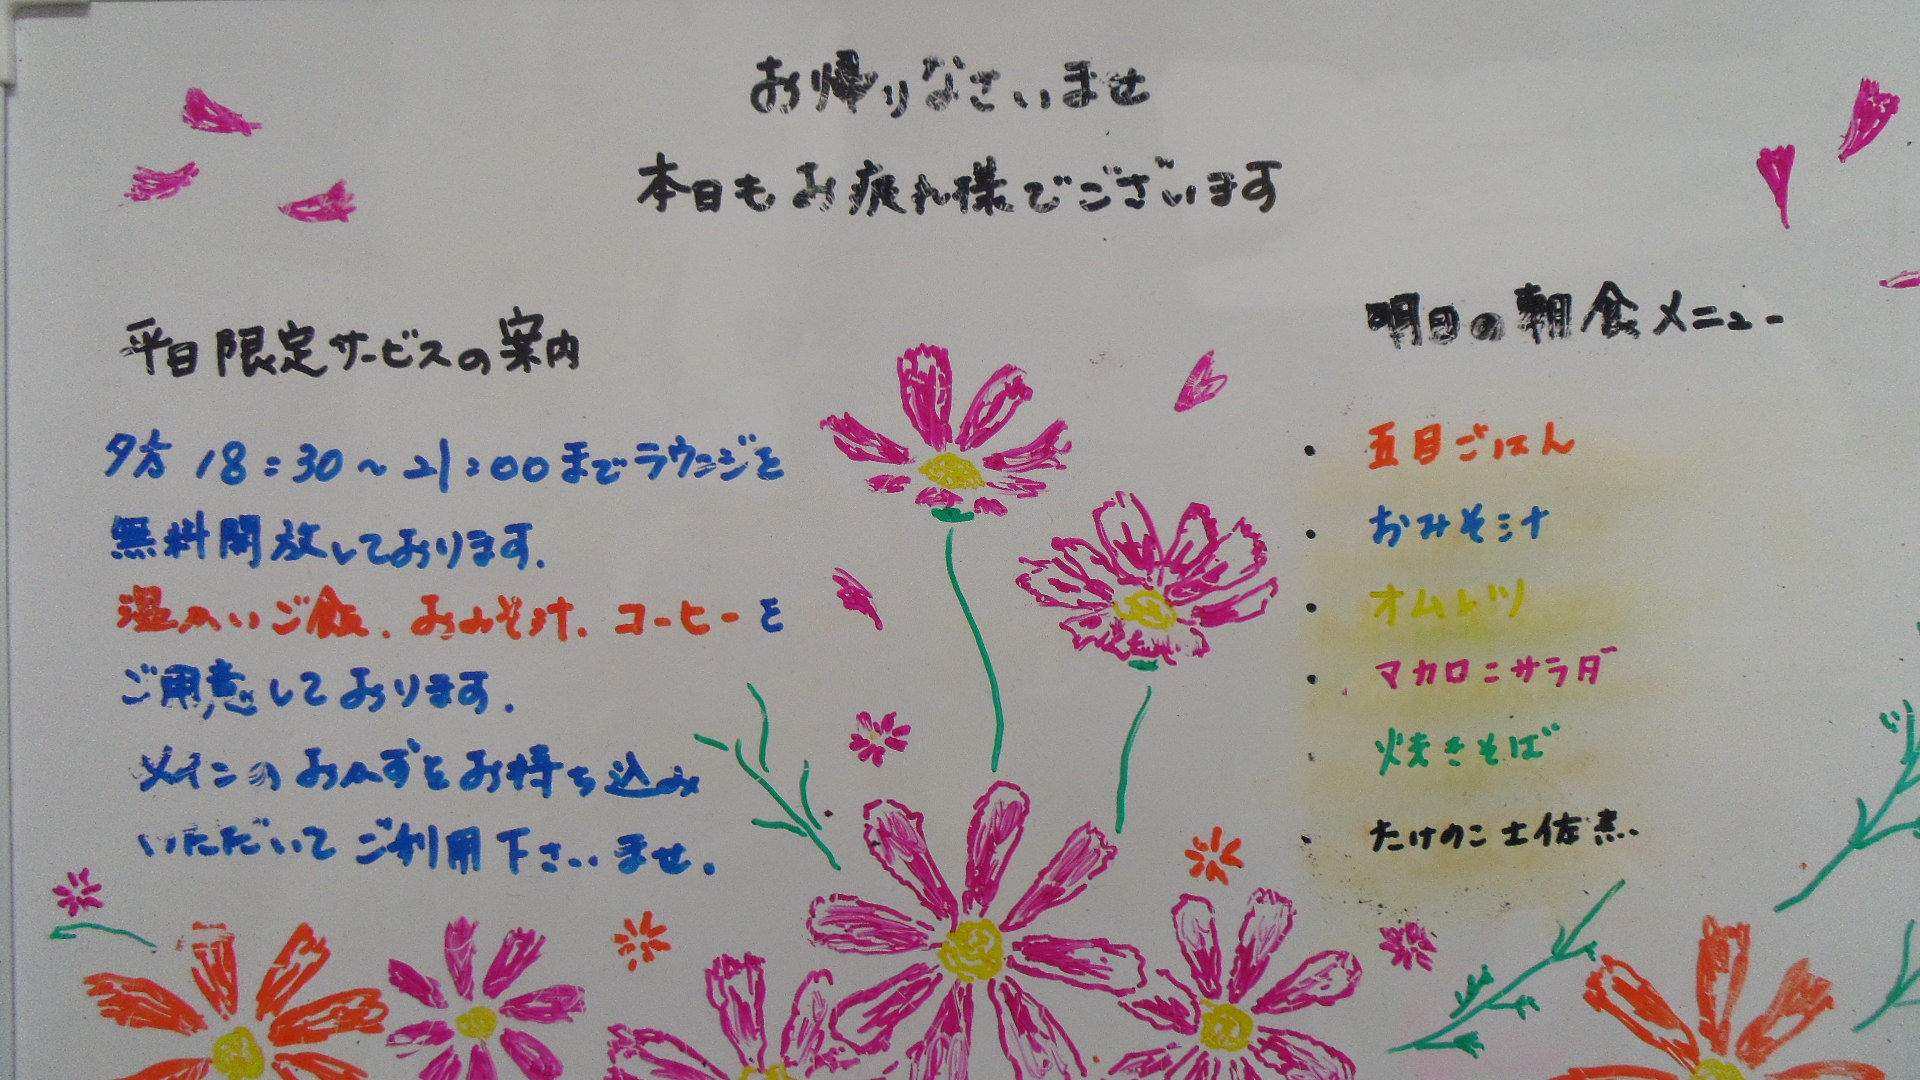 お帰りなさいませ
本日もお疲れ様でございます
平日限定サービスの案内
夕方 18:30～21:00までラウンジを
無料開放しております.
温かいご飯、おみそ汁、コーヒーを
ご用意しております.
メインのおかずをお持ち込み
いただいてご利用下さいませ.
明日の朝食メニュー
・五目ごはん
・おみそ汁
・オムレツ
・マカロニサラダ
・焼きそば
・たけのこ土佐煮